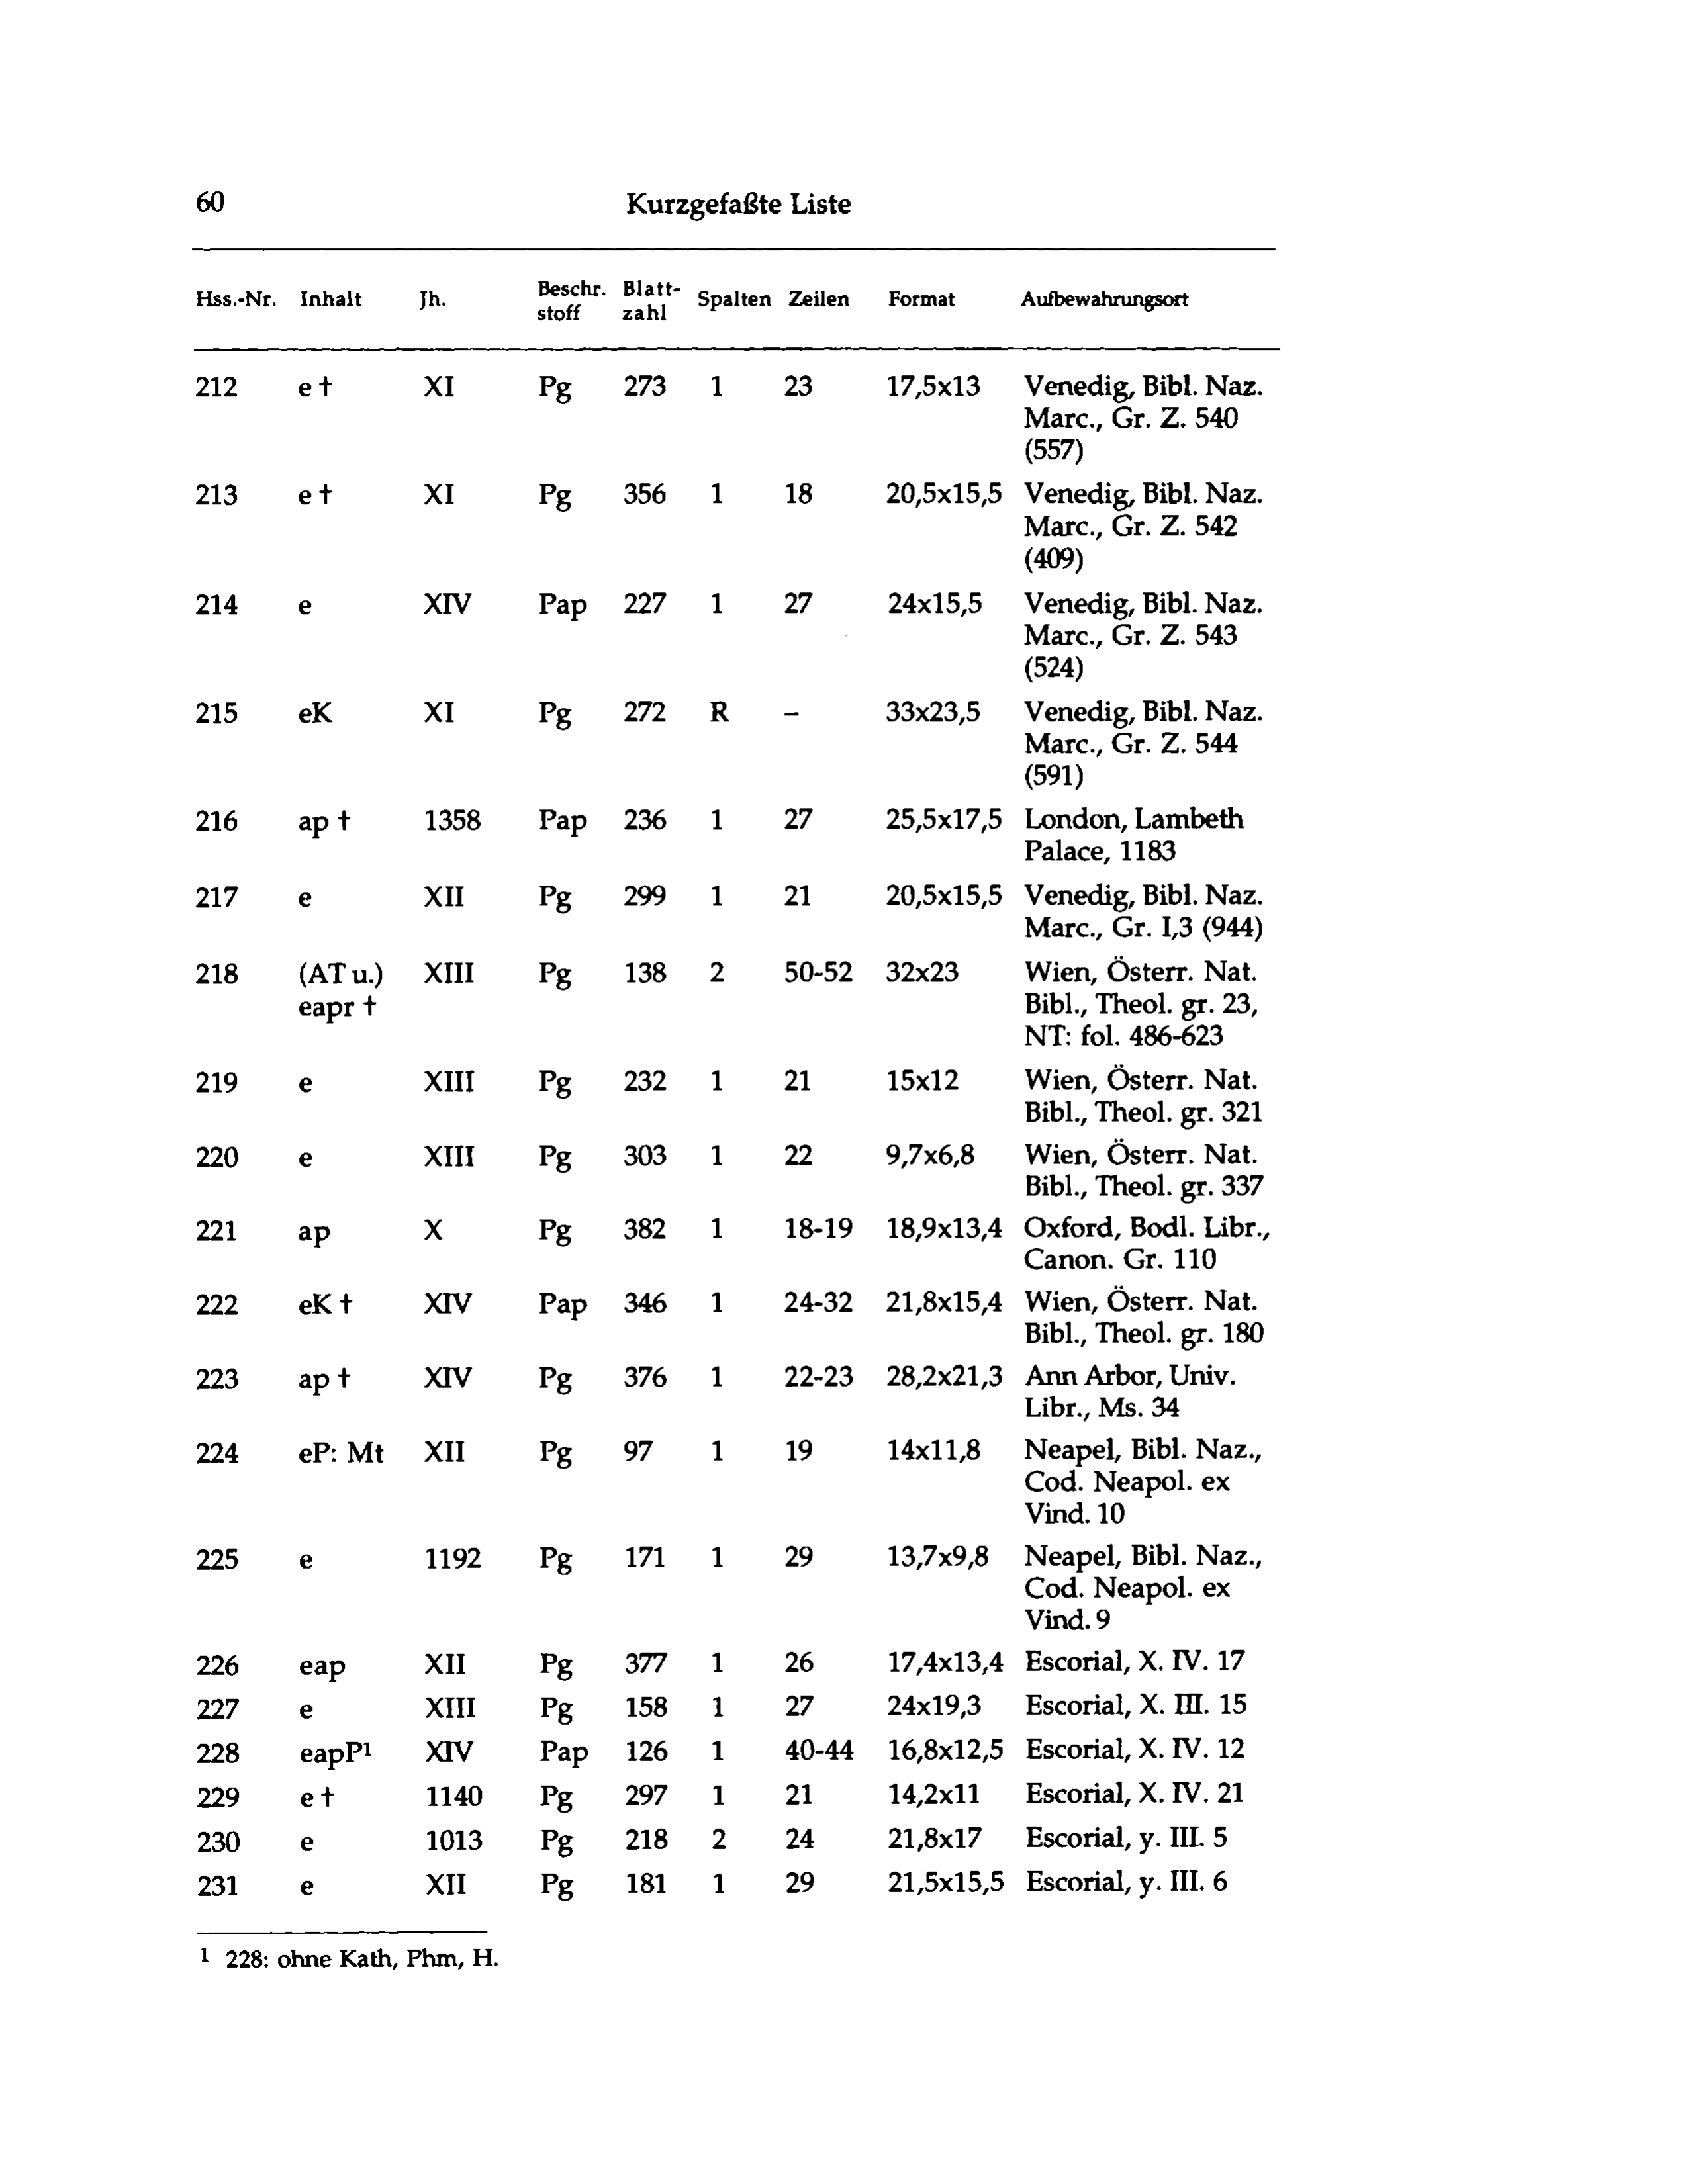 60 Kurzgefaßte Liste
Hss.-Nr. Inhalt Jh. Beschr. stoff Blatt- zahl Spalten Zeilen Format Aufbewahrungsort
212 e † XI Pg 273 1 23 17,5x13 Venedig, Bibl. Naz.
Marc., Gr. Z. 540
(557)
213 e † XI Pg 356 1 18 20,5x15,5 Venedig, Bibl. Naz.
Marc., Gr. Z. 542
(409)
214 e XIV Pap 227 1 27 24x15,5 Venedig, Bibl. Naz.
Marc., Gr. Z. 543
(524)
215 eK XI Pg 272 R – 33x23,5 Venedig, Bibl. Naz.
Marc., Gr. Z. 544
(591)
216 ap † 1358 Pap 236 1 27 25,5x17,5 London, Lambeth
Palace, 1183
217 e XII Pg 299 1 21 20,5x15,5 Venedig, Bibl. Naz.
Marc., Gr. I,3 (944)
218 (AT u.) XIII Pg 138 2 50-52 32x23 Wien, Österr. Nat.
eapr † Bibl., Theol. gr. 23,
NT: fol. 486-623
219 e XIII Pg 232 1 21 15x12 Wien, Österr. Nat.
Bibl., Theol. gr. 321
220 e XIII Pg 303 1 22 9,7x6,8 Wien, Österr. Nat.
Bibl., Theol. gr. 337
221 ap X Pg 382 1 18-19 18,9x13,4 Oxford, Bodl. Libr.,
Canon. Gr. 110
222 eK † XIV Pap 346 1 24-32 21,8x15,4 Wien, Österr. Nat.
Bibl., Theol. gr. 180
223 ap † XIV Pg 376 1 22-23 28,2x21,3 Ann Arbor, Univ.
Libr., Ms. 34
224 eP: Mt XII Pg 97 1 19 14x11,8 Neapel, Bibl. Naz.,
Cod. Neapol. ex
Vind. 10
225 e 1192 Pg 171 1 29 13,7x9,8 Neapel, Bibl. Naz.,
Cod. Neapol. ex
Vind. 9
226 eap XII Pg 377 1 26 17,4x13,4 Escorial, X. IV. 17
227 e XIII Pg 158 1 27 24x19,3 Escorial, X. III. 15
228 eapP¹ XIV Pap 126 1 40-44 16,8x12,5 Escorial, X. IV. 12
229 e † 1140 Pg 297 1 21 14,2x11 Escorial, X. IV. 21
230 e 1013 Pg 218 2 24 21,8x17 Escorial, y. III. 5
231 e XII Pg 181 1 29 21,5x15,5 Escorial, y. III. 6
¹ 228: ohne Kath, Phm, H.